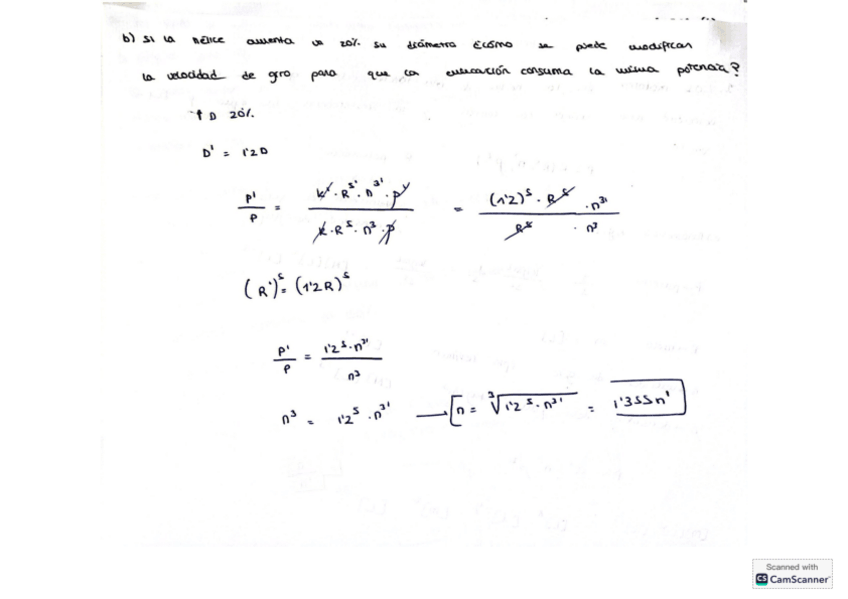 b) Si la hélice aumenta un 20% su diámetro ¿cómo se puede modificar
la velocidad de giro para que la embarcación consuma la misma potencia?
↑ D 20%
D' = 1'2D
P'/P = (k' · R⁵' · n³' · ρ')/(k · R⁵ · n³ · ρ) = ((1'2)⁵ · R⁵ · n³')/(R⁵ · n³)
(R')⁵ = (1'2R)⁵
P'/P = (1'2⁵ · n³')/n³
n³ = 1'2⁵ · n³' → [n = ∛(1'2⁵ · n³') = 1'355n']
Scanned with
CS CamScanner